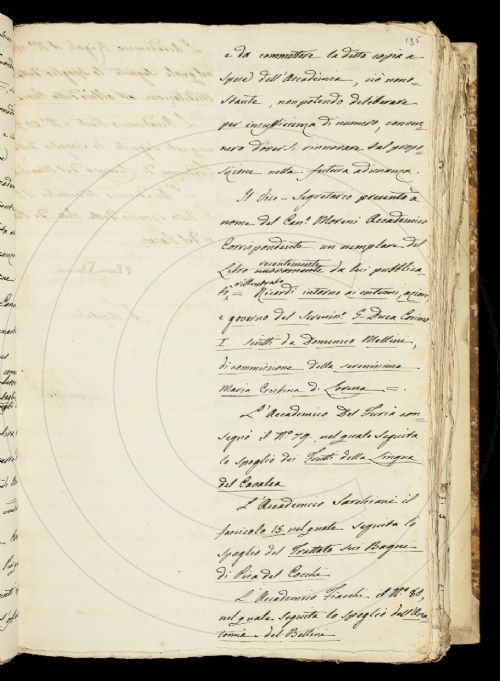 135
e da commettere la detta copia a
spese dell'Accademia, ciò nono-
stante, non potendo deliberare
per insufficienza di numero, conven-
nero doversi rinnovare tal propo-
sizione nella futura adunanza.
Il Vice-Segretario presentò a
nome del Can.º Moreni Accademico
Corrispondente un esemplare del
recentemente
Libro nuovamente da lui pubblica
e illustrato
to = Ricordi intorno ai costumi, azioni
e governo del Sereniss.º G. Duca Cosimo
I. scritti da Domenico Mellini
di commissione della serenissima
Maria Cristina di Lorena =.
L'Accademico Del Furia con-
segnò il Nº 79. nel quale seguita
lo spoglio dei Frutti della Lingua
del Cavalca
L'Accademico Sarchiani il
fascicolo 13. nel quale seguita lo
spoglio del Trattato sui Bagni
di Pisa del Cocchi
L'Accademico Fiacchi il Nº 80,
nel quale seguita lo spoglio dell'Ana
tomia del Bellini